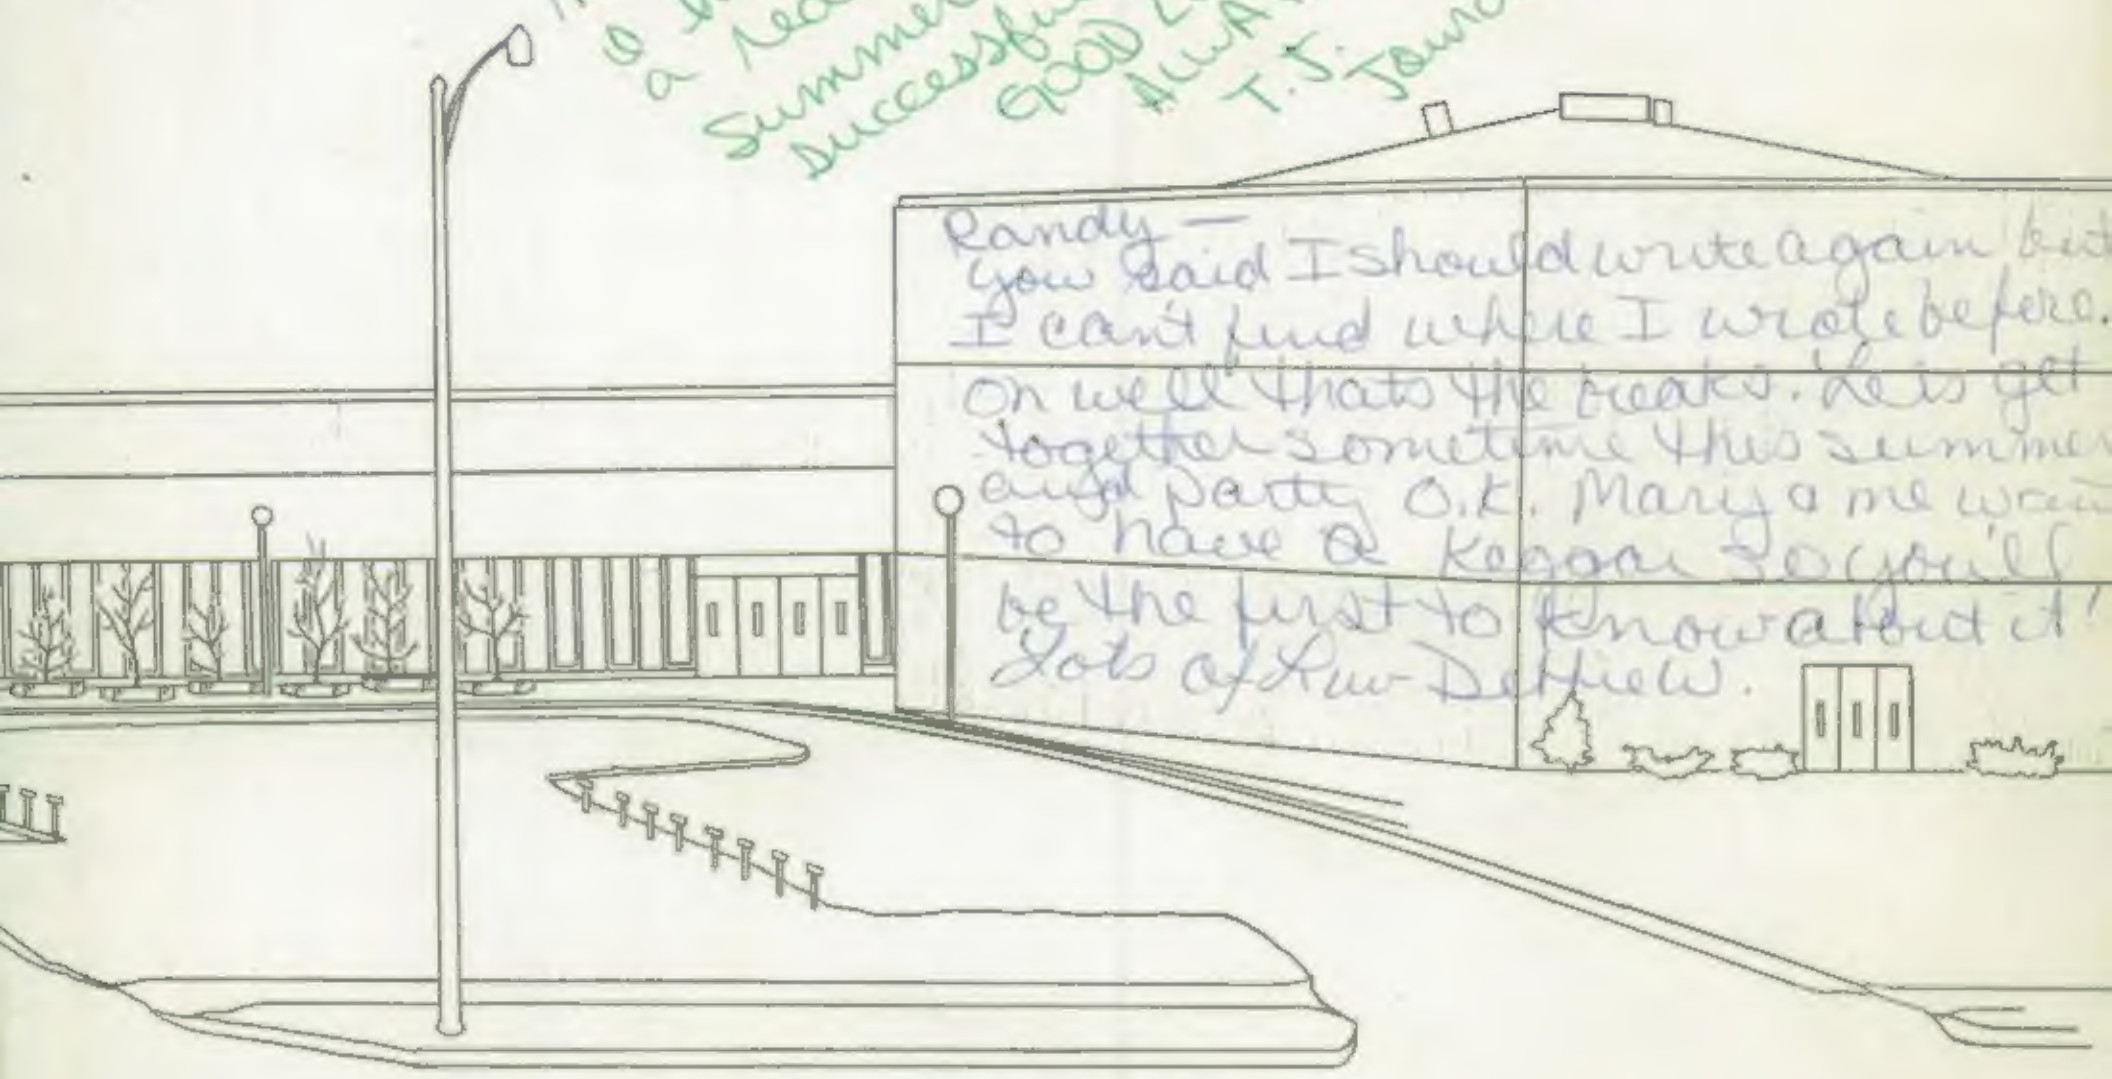 a rea
Summer
Successfu
GOOD
ALWA
T.J.
Randy —
you said I should write again but
I can't find where I wrote before.
Oh well thats the breaks. Lets get
together sometime this summer
and party O.K. Mary & me wan
to have a Keggar so you'll
be the first to know about it!
Lots of Luv-